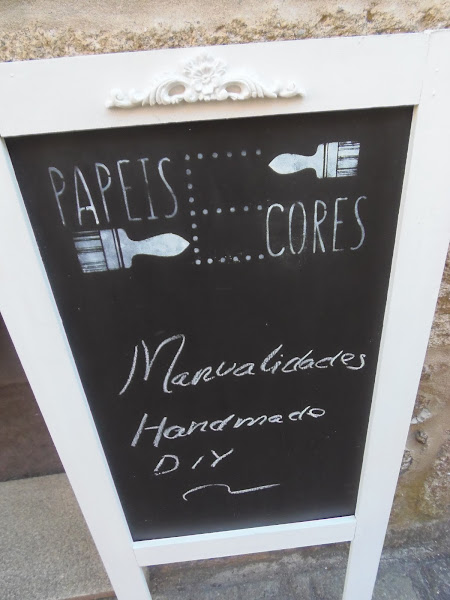 PAPEIS
E
CORES
Manualidades
Handmade
DIY